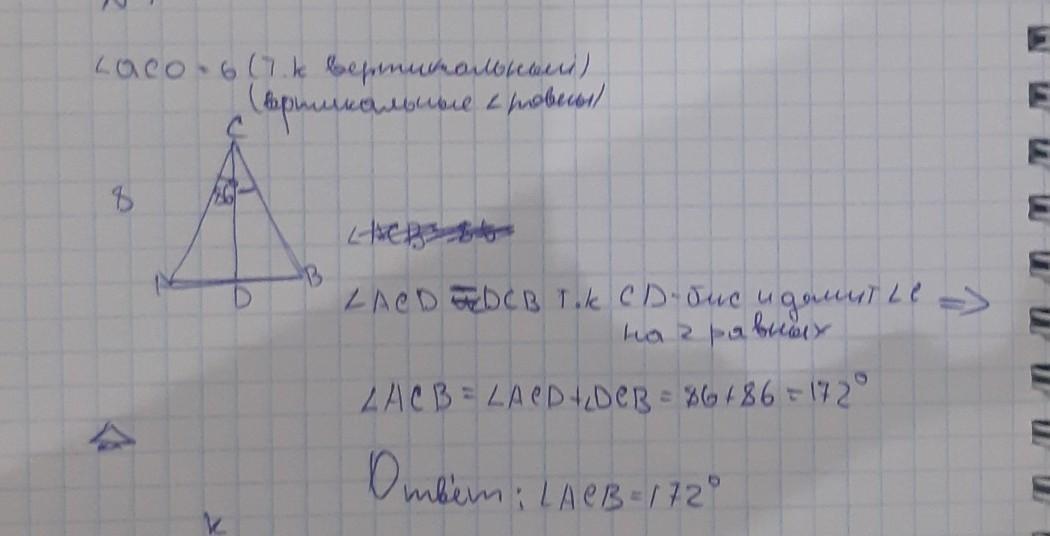 ∠ACO = 6 (т.к вертикальный)
(вертикальные ∠ равны)
C
8
86
A
B
D
∠ACD = ∠DCB т.к CD-бис и делит ∠C =>
на 2 равных
∠ACB = ∠ACD+∠DCB = 86+86 = 172°
Ответ: ∠ACB = 172°
K